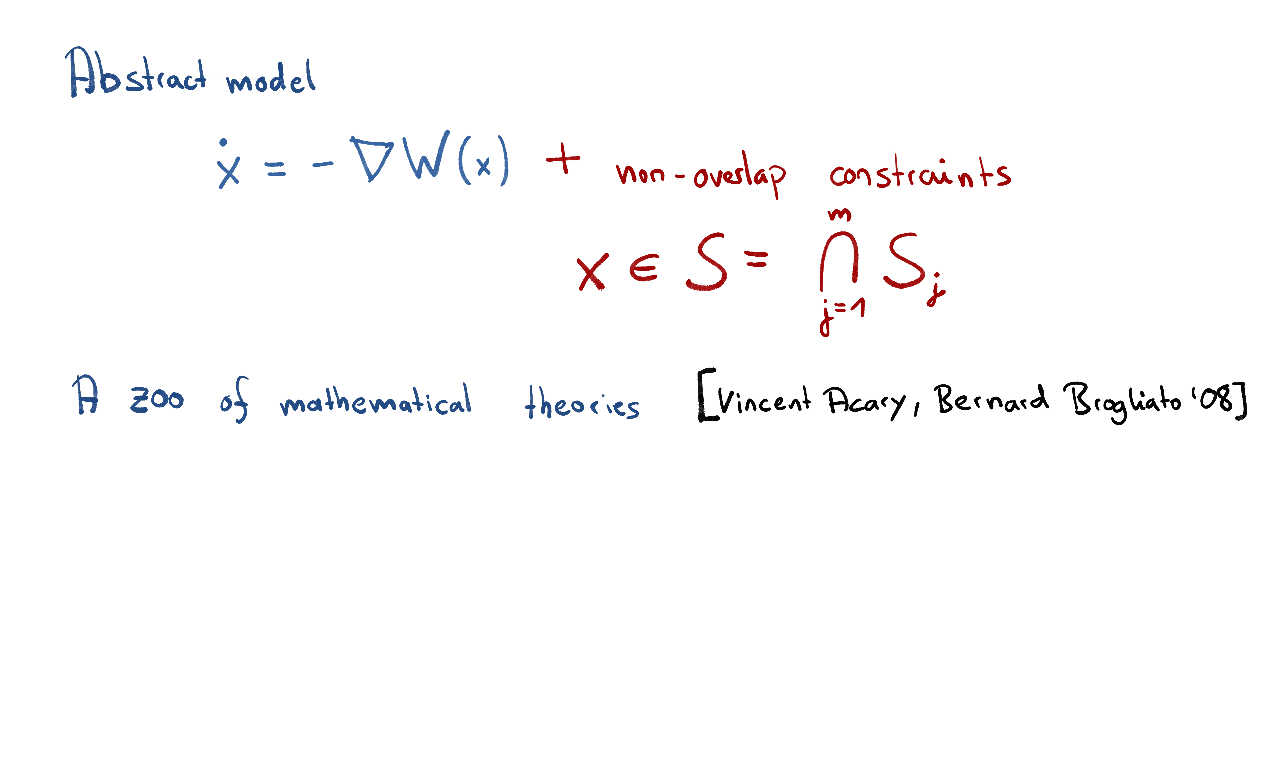 Abstract model
ẋ = - ∇W(x) + non-overlap constraints
x ∈ S = ⋂_{j=1}^{m} S_j
A zoo of mathematical theories [Vincent Acary, Bernard Brogliato '08]